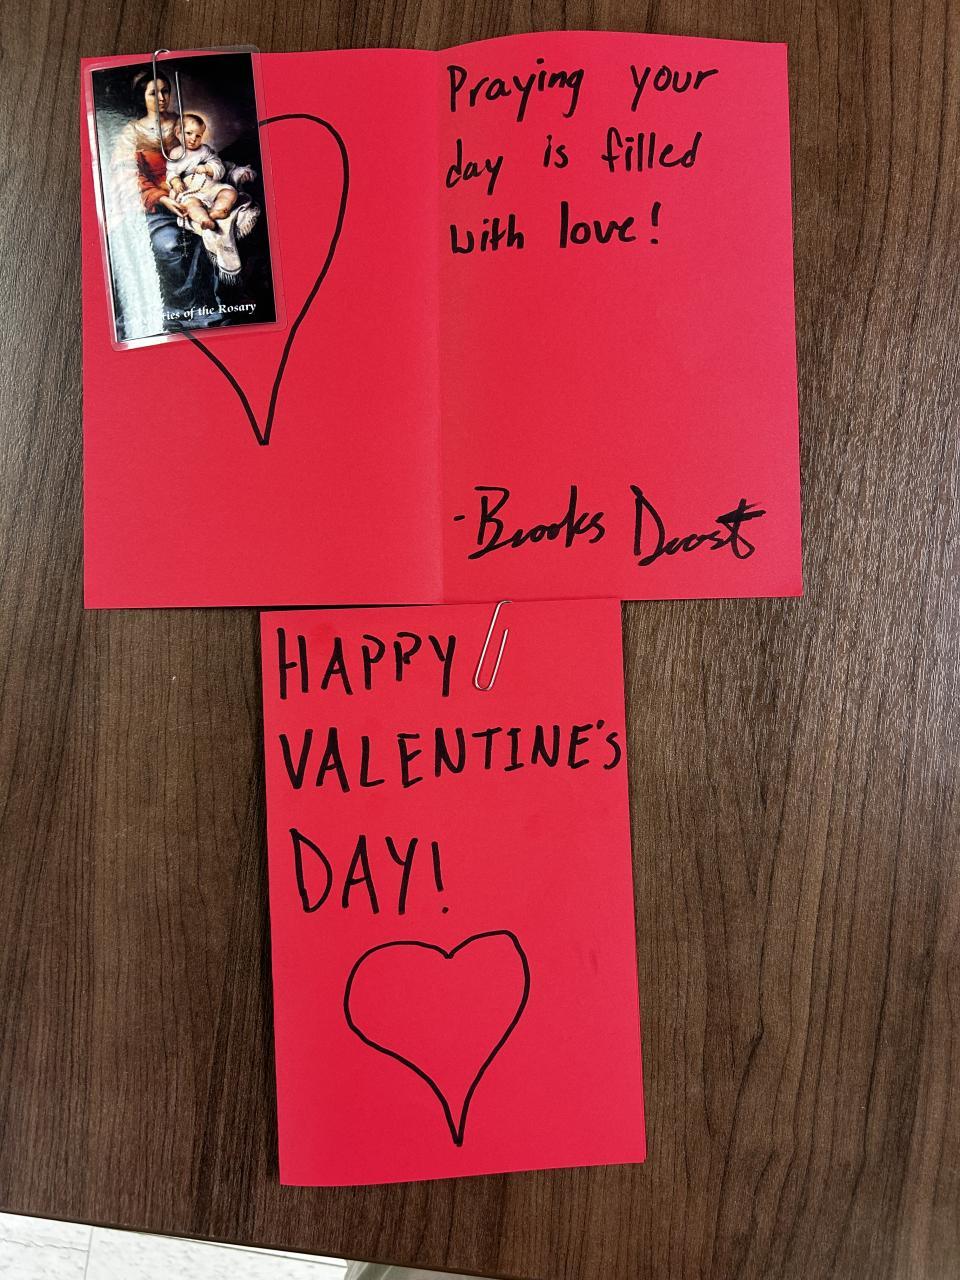 Praying your
day is filled
with love!
of the Rosary
-Brooks
HAPPY
VALENTINE'S
DAY!